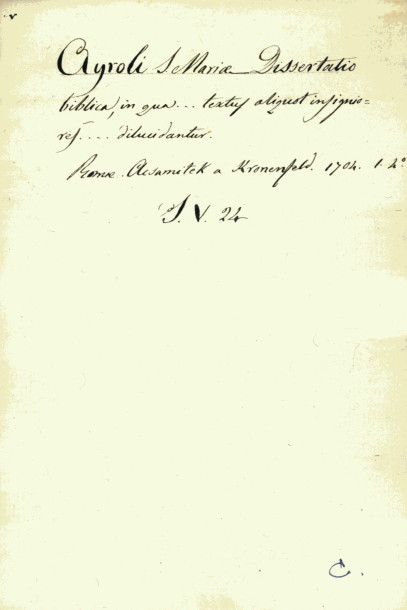 Ayroli S. Mariæ Dissertatio
biblica, in qua... textus aliquot insignio=
res.... dilucidantur.
Romæ. Acsamitek a Kronenfeld. 1704. 1. 4º
S. V. 24
C.